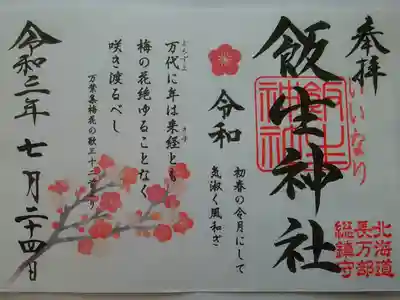 奉拝
いいなり
飯生神社
飯生
神社
北海道
長万部
総鎮守
令和
初春の令月にして
気淑く風和ぎ
よろずよ
万代に年は来経とも
きふ
梅の花絶ゆることなく
咲き渡るべし
万葉集梅花の歌三十二首より
令和三年七月二十四日